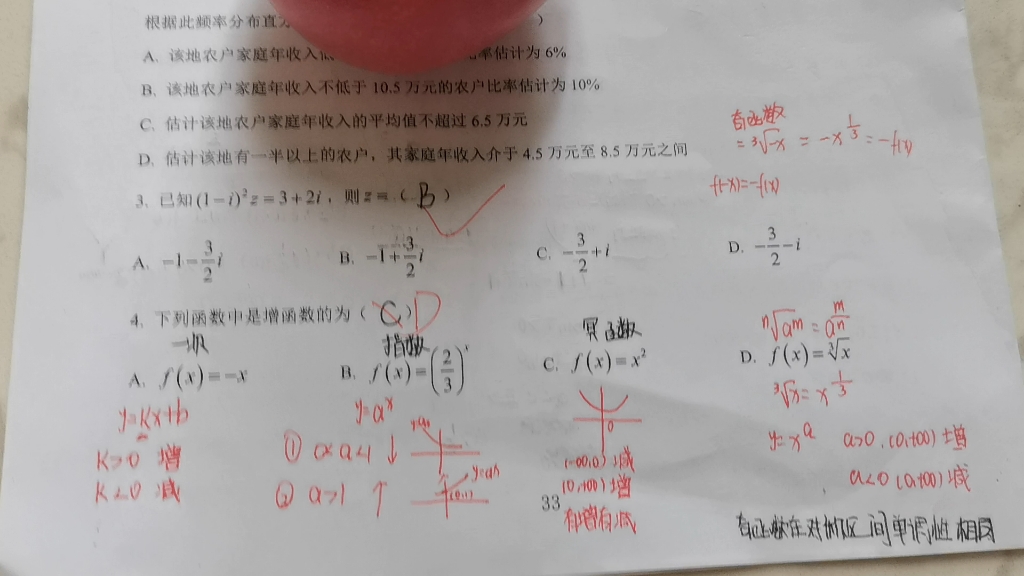 根据此频率分布直方
)
A. 该地农户家庭年收入低
率估计为 6%
B. 该地农户家庭年收入不低于 10.5 万元的农户比率估计为 10%
C. 估计该地农户家庭年收入的平均值不超过 6.5 万元
D. 估计该地有一半以上的农户，其家庭年收入介于 4.5 万元至 8.5 万元之间
奇函数
= ∛-x = -x^{1/3} = -f(x)
f(-x)=-f(x)
3. 已知 (1-i)²z=3+2i，则 z=（ B ）
A. -1-3/2 i
B. -1+3/2 i
C. -3/2+i
D. -3/2-i
4. 下列函数中是增函数的为（ C ）D
一次
指数
幂函数
ⁿ√a^m = a^{m/n}
A. f(x)=-x
B. f(x)=(2/3)^x
C. f(x)=x²
D. f(x)=∛x
∛x = x^{1/3}
y=kx+b
k>0 增
k<0 减
y=a^x
① 0<a<1 ↓
② a>1 ↑
y=a^x
(0,1)
0
(-∞,0) 减
(0,+∞) 增
有增有减
y=x^a
a>0 (0,+∞) 增
a<0 (0,+∞) 减
33
奇函数在对称区间单调性相同